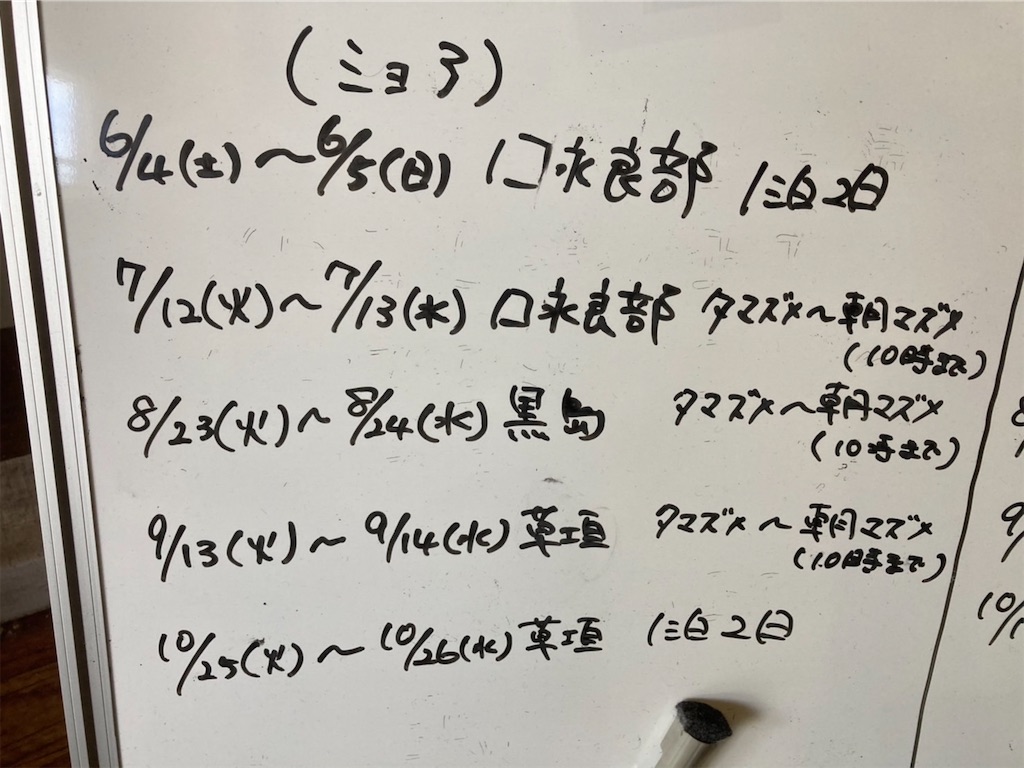 (ミヨ3)
6/4(土)～6/5(日) 口永良部 1泊2日
7/12(火)～7/13(水) 口永良部 夕マズメ～朝マズメ
(10時まで)
8/23(火)～8/24(水) 黒島 夕マズメ～朝マズメ
(10時まで)
9/13(火)～9/14(水) 草垣 夕マズメ～朝マズメ
(10時まで)
10/25(火)～10/26(水) 草垣 1泊2日
8
9/
10/